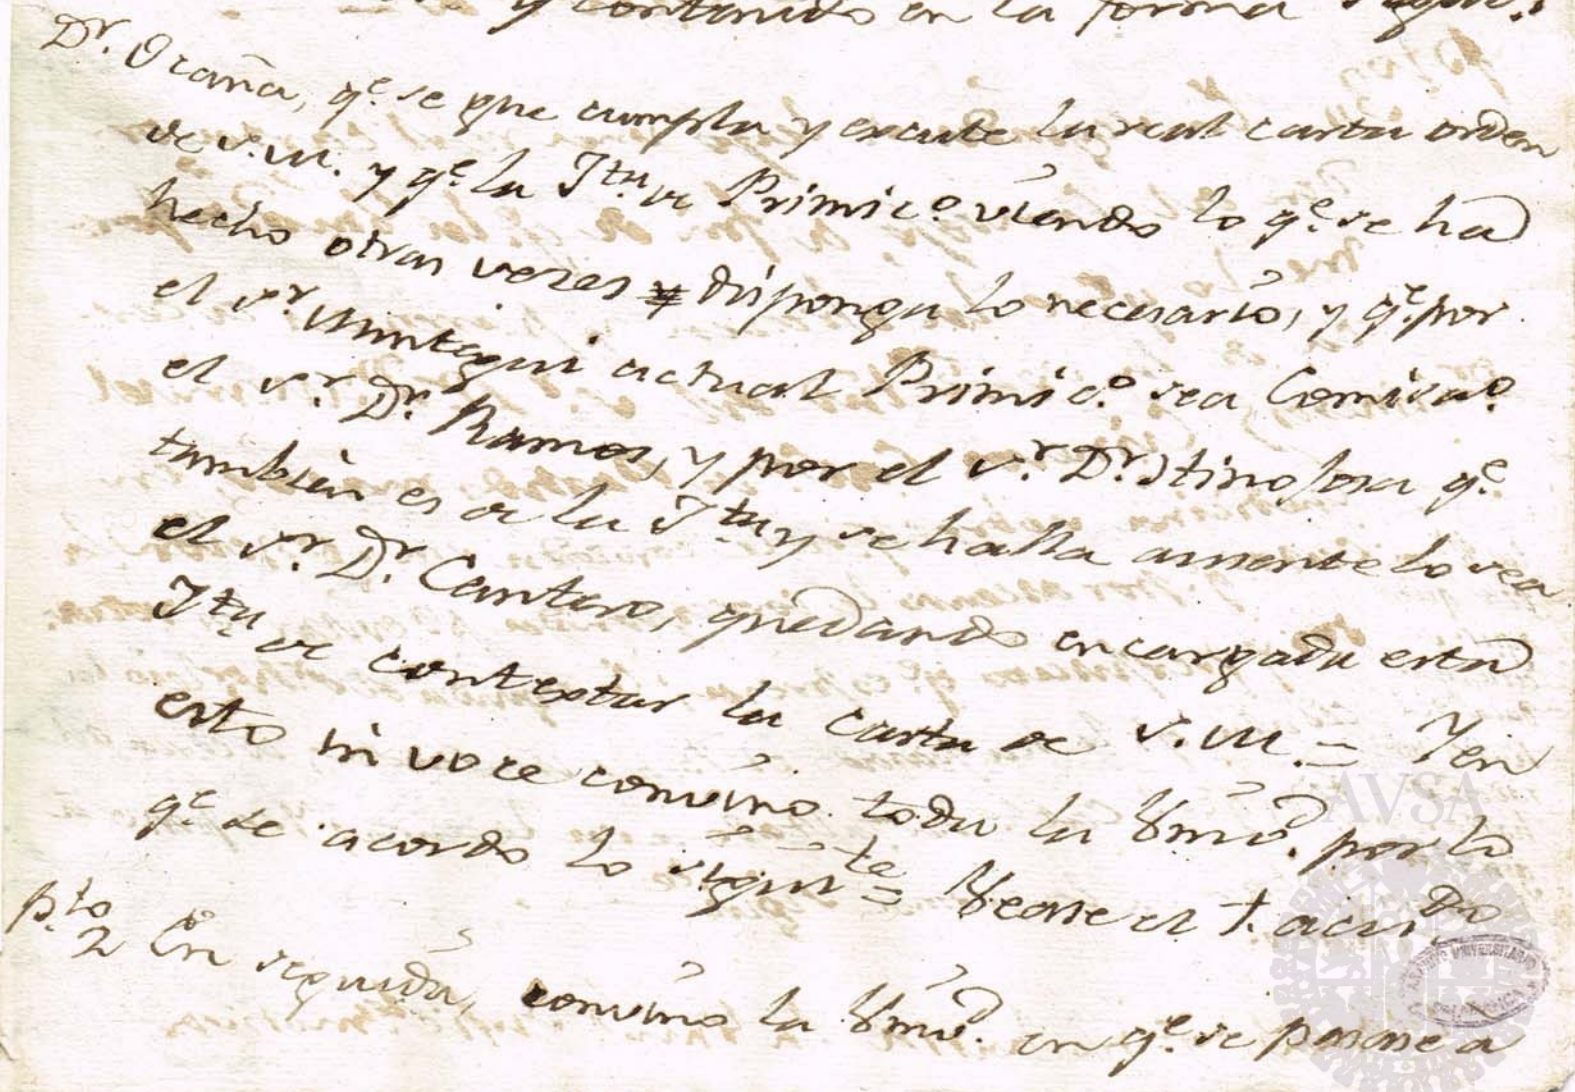 y contenido en la forma sigui.
Dr. Ocaña, qe. se que cumpla y execute la real carta orden
de S.M. y qe. la Jta. de Primico. viendo lo qe. se ha
hecho otras vezes disponga lo necesario, y qe. por
el Sr. Mintegui actual Primico. sea Comisao.
el Sr. Dr. Ramos, y por el Sr. Dr. Hinojosa qe.
tambien es de la Jta. y se halla ausente lo sea
el Sr. Dr. Cantero, quedando encargada esta
Jta. de contextar la carta de S.M. = Y en
esto in voce convino toda la Univd. por lo
qe. se acordo lo siguite. = Vease el 1. acdo.
Pto. 2 En seguida, convino la Univd. en qe. se pasase a
AVSA